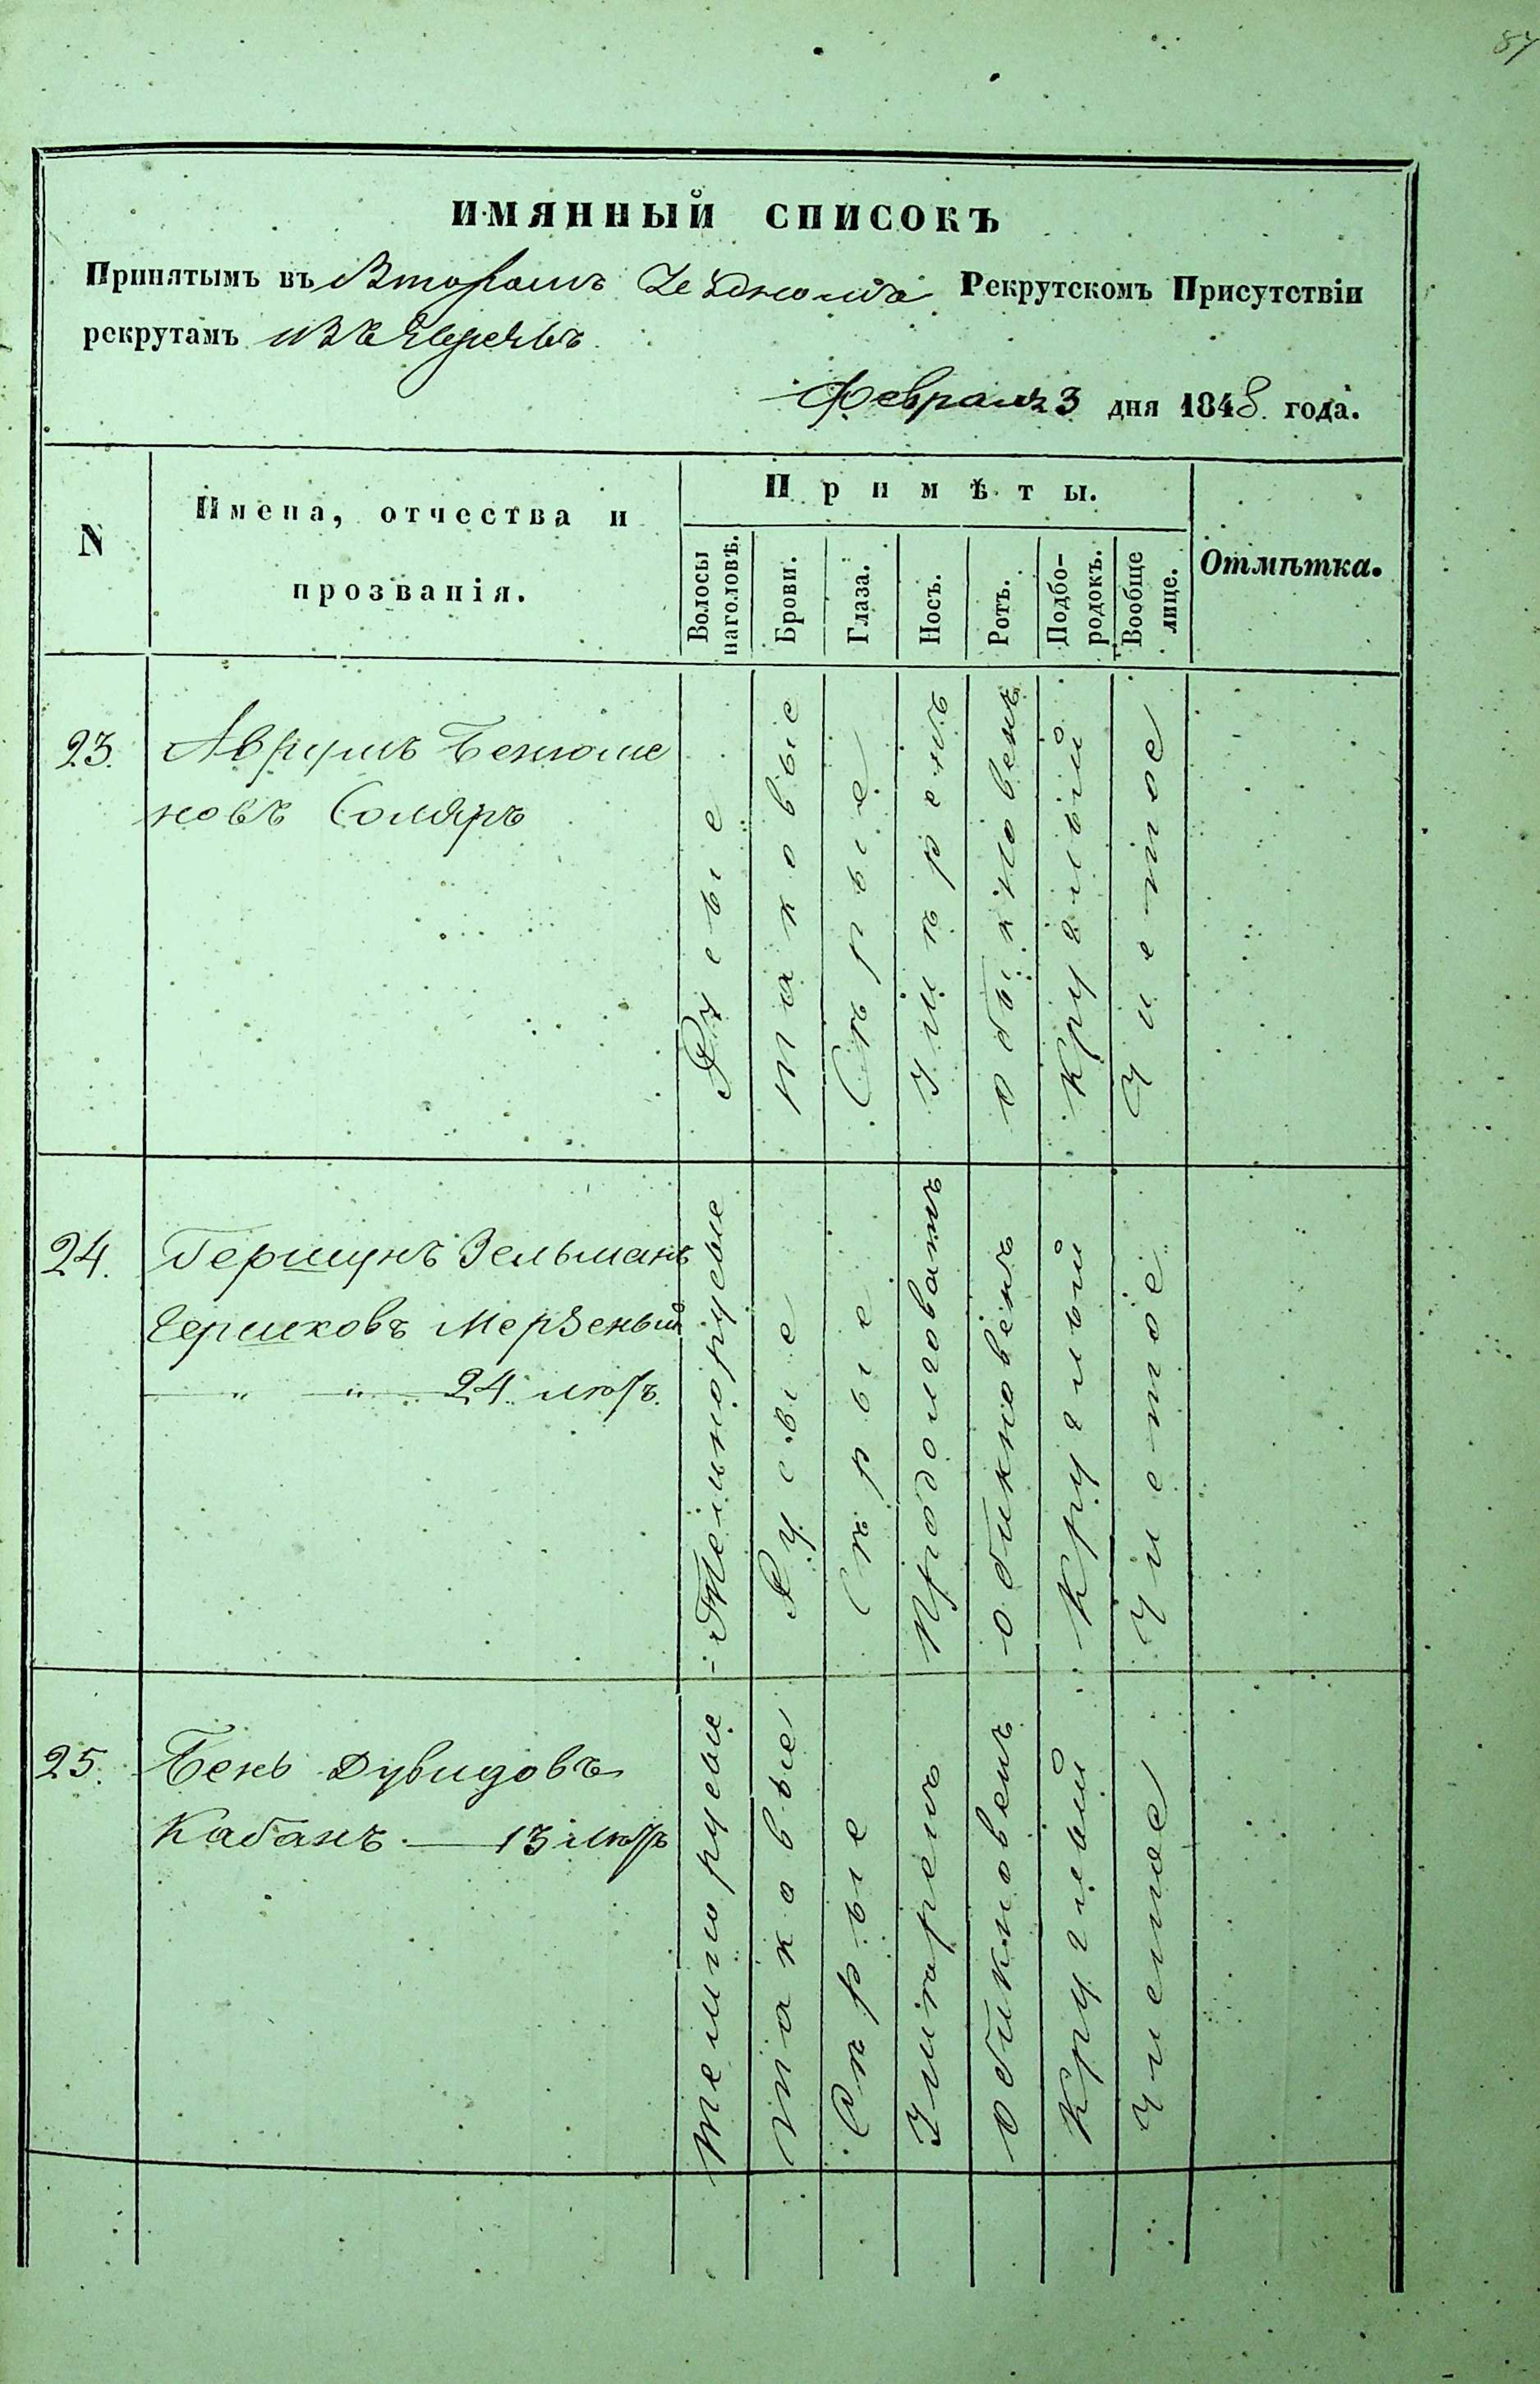 87
ИМЯННЫЙ СПИСОКЪ
Принятымъ въ Второмъ Уѣздномъ Рекрутскомъ Присутствіи
рекрутамъ изъ Евреевъ
Февраля 3 дня 1848 года.
N
Имена, отчества и
прозванія.
Примѣты.
Волосы
наголовѣ.
Брови.
Глаза.
Носъ.
Ротъ.
Подбо-
родокъ.
Вообще
лице.
Отмѣтка.
23.
Аврумъ Бенюми
новъ Соляръ
Русые
таковые
Сѣрые
Умѣренъ
обыкновенъ
Круглый
Чистое
24.
Гершунъ Зельманъ
Гершковъ Мерзеный
24 лѣтъ.
Темнорусые
Русые
Сѣрые
Продолговатъ
обикновенъ
Круглый
Чистое
25.
Бень Дувидовъ
Кабанъ — 13 лѣтъ
темнорусые
таковые
Сѣрые
Умѣренъ
обикновенъ
Круглый
Чистое